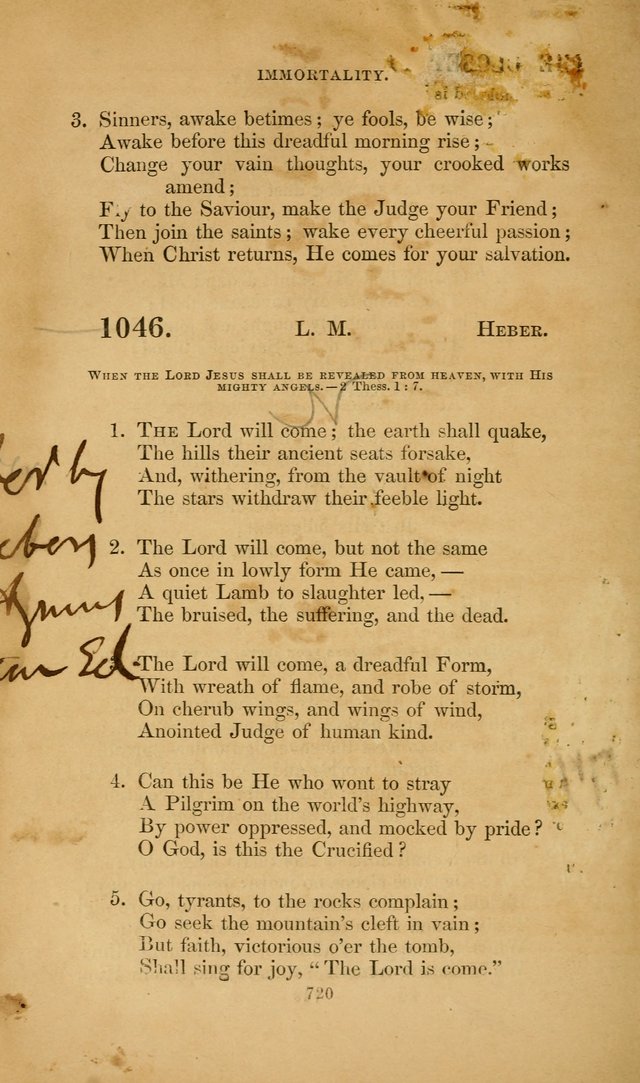 IMMORTALITY.
3. Sinners, awake betimes; ye fools, be wise;
Awake before this dreadful morning rise;
Change your vain thoughts, your crooked works
amend;
Fly to the Saviour, make the Judge your Friend;
Then join the saints; wake every cheerful passion;
When Christ returns, He comes for your salvation.
1046. L. M. HEBER.
WHEN THE LORD JESUS SHALL BE REVEALED FROM HEAVEN, WITH HIS
MIGHTY ANGELS.—2 Thess. 1 : 7.
N
1. THE Lord will come; the earth shall quake,
The hills their ancient seats forsake,
And, withering, from the vault of night
The stars withdraw their feeble light.
2. The Lord will come, but not the same
As once in lowly form He came,—
A quiet Lamb to slaughter led,—
The bruised, the suffering, and the dead.
The Lord will come, a dreadful Form,
With wreath of flame, and robe of storm,
On cherub wings, and wings of wind,
Anointed Judge of human kind.
4. Can this be He who wont to stray
A Pilgrim on the world's highway,
By power oppressed, and mocked by pride?
O God, is this the Crucified?
5. Go, tyrants, to the rocks complain;
Go seek the mountain's cleft in vain;
But faith, victorious o'er the tomb,
Shall sing for joy, "The Lord is come."
720
by
Ed.